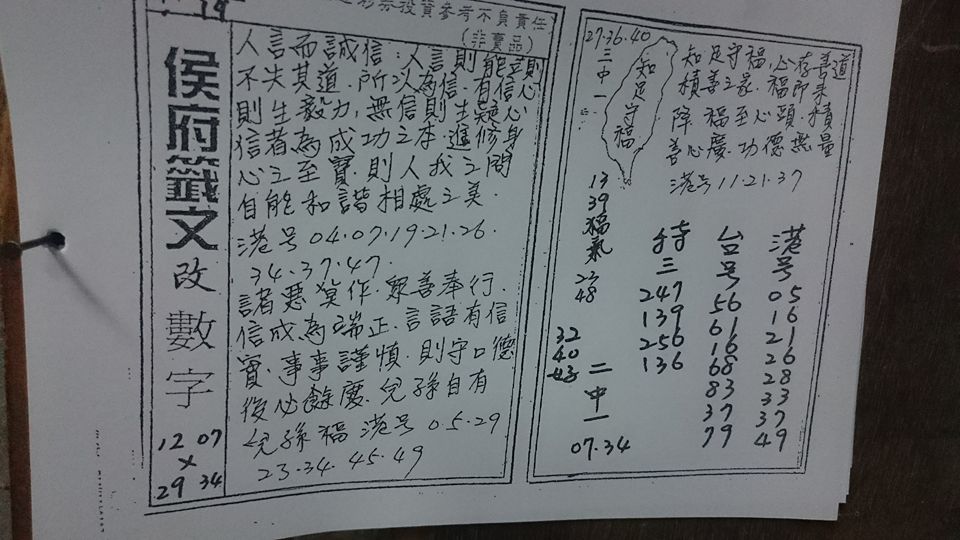 彩券投資參考不負責任
(非賣品)
侯府籤文
改數字
12 07
×
29 34
人言而誠信:人言則能意則
不失其道.所以為信.有信心
則生毅力,無信則生疑心
信者為成功之本.進修身
心之至寶.則人我之間
自能和諧相處之美.
港号04.07.19.21.26.
34.37.47.
諸惡莫作.眾善奉行.
信成為端正.言語有信
實.事事謹慎.則守口德
後必餘慶.兒孫自有
兒孫福 港号 05.29
23.34.45.49
27.36.40
三中一
知足守福
知足守福,心存善道
積善之家.福即來
降福至心頭.積
善心慶.功德無量
港号11.21.37
港号
05
16
21
26
28
33
37
49
台号
56
61
16
68
83
37
79
特三
247
139
256
136
13
39
福氣
23
48
32
40
二中一
07.34